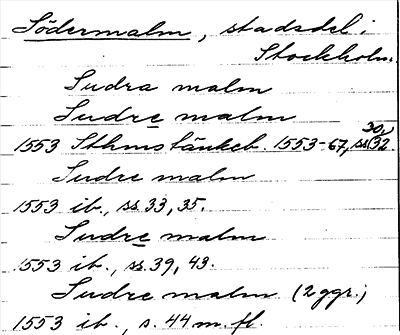 Södermalm, stadsdel i
Stockholm.
Sudra malm
Sudre malm
1553 Sthms tänkeb. 1553-67, ss. 30, 32.
Sudre malm
1553 ib., ss. 33, 35.
Sudre malm
1553 ib., ss. 39, 43.
Sudre malm (2 ggr.)
1553 ib., s. 44 m. fl.